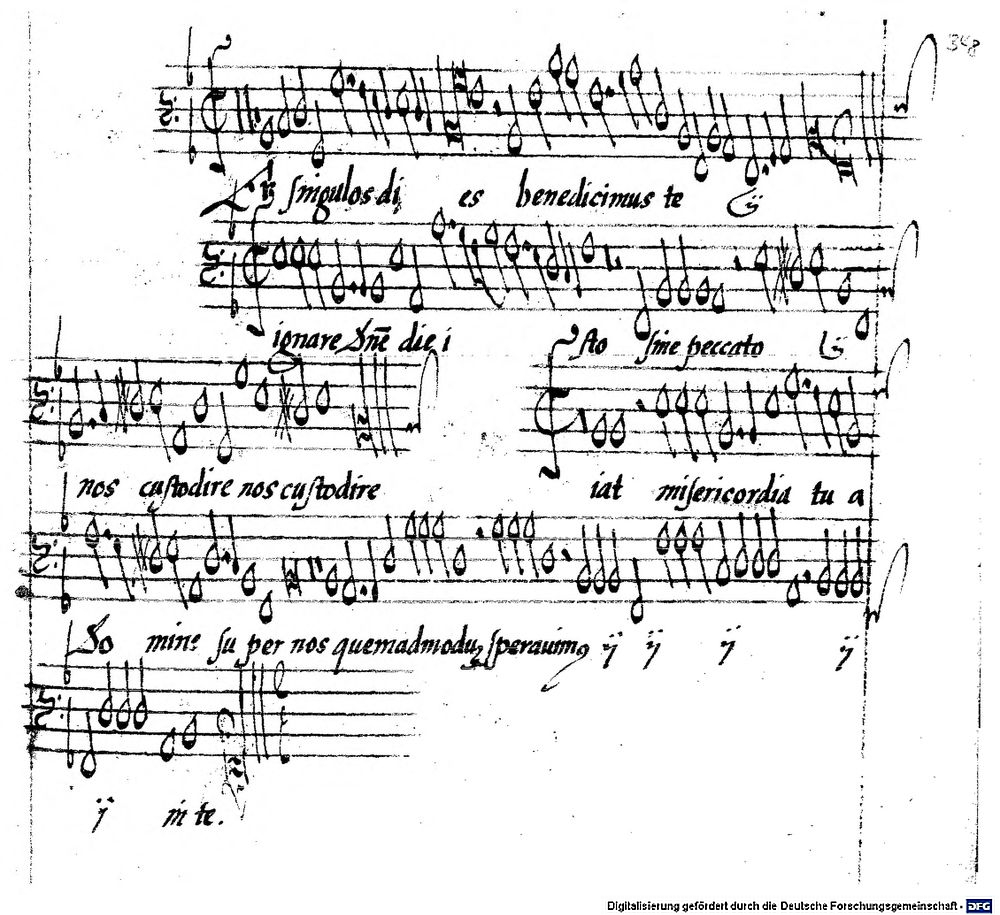 348
Per singulos di es benedicimus te ij
ignare Dñe die i sto sine peccato ij
nos custodire nos custodire iat misericordia tu a
Do mine su per nos quemadmodum sperauimus ij ij ij ij
ij in te.
Digitalisierung gefördert durch die Deutsche Forschungsgemeinschaft - DFG